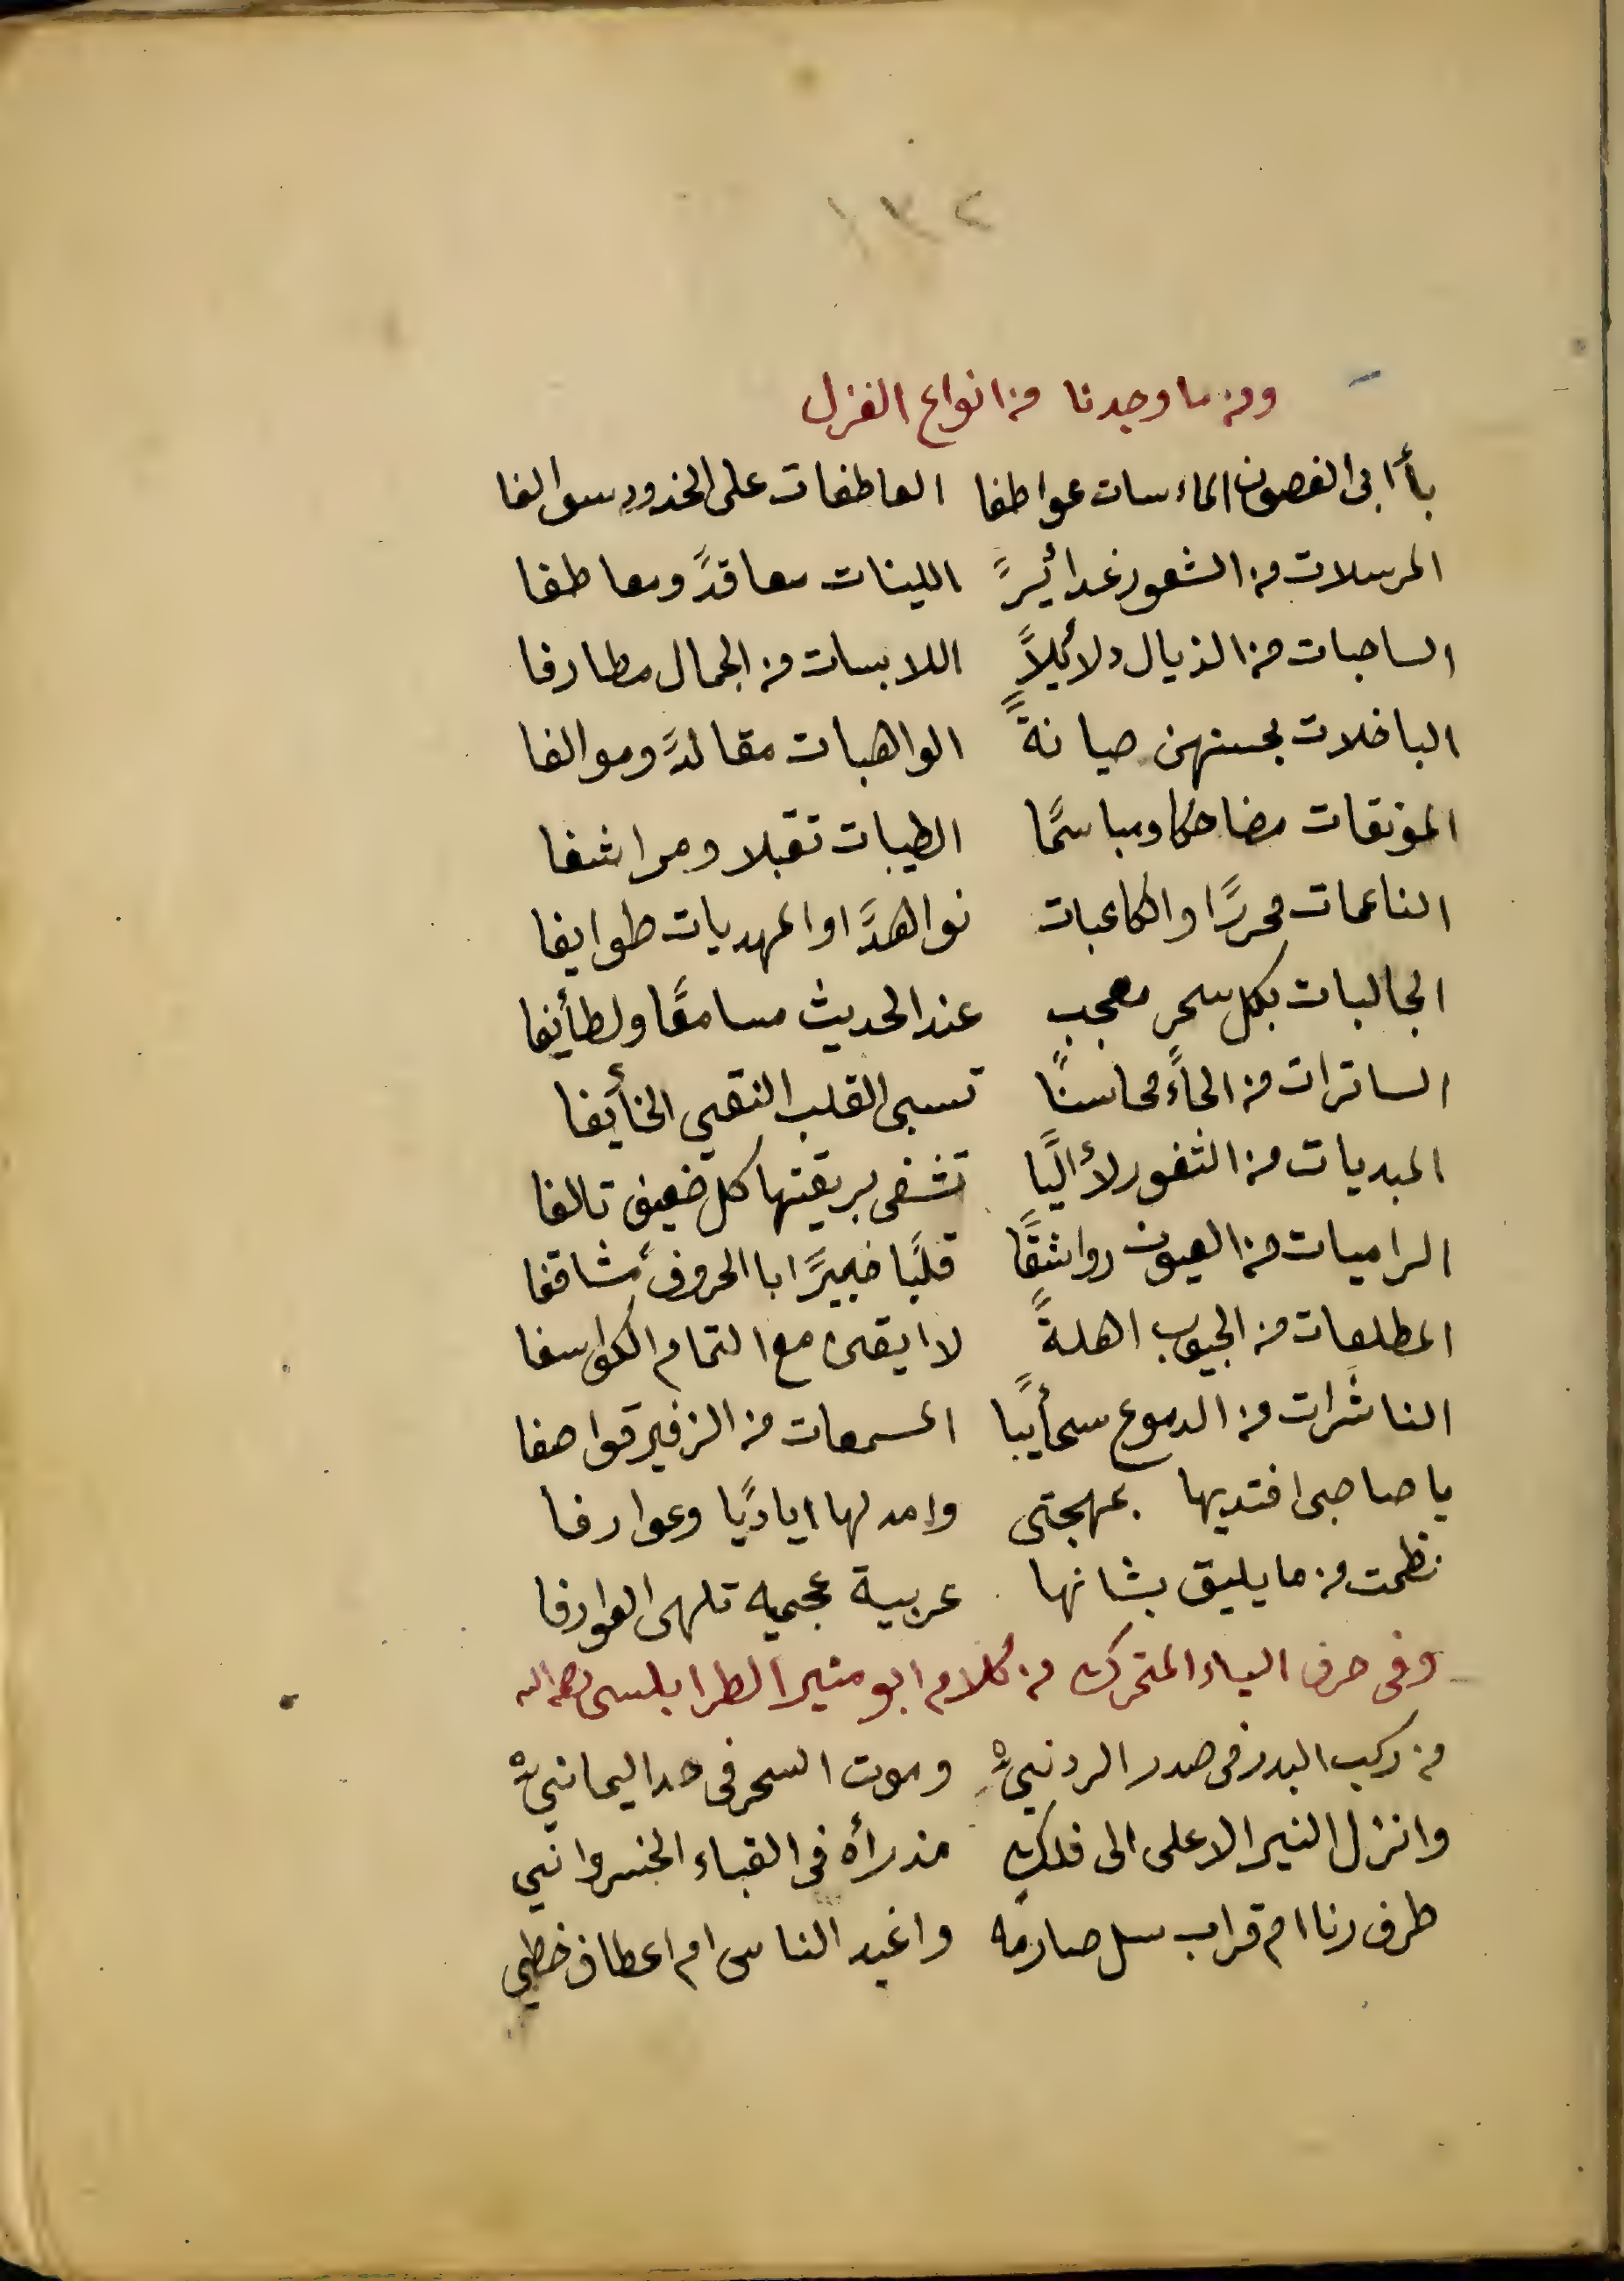 ١٣٢
ومن ما وجدنا من انواع الغزل
بأابى الغصون الماءسات عواطفا العاطفات على الخدود سوالفا
المرسلات من الشعور غدأيرً اللينات معاقدً ومعاطفا
الساحبات من الذيال دلأيلاً اللابسات من الجمال مطارفا
الباخلات بحسنهن صيانةً الواهبات مقالدً وموالفا
المونقات مضاحكا ومباسمًا الطيبات تقبلا ومراشفا
الناعمات محررًا والكاعبات نواهدًا والمهديات طوايفا
الجالبات بكل سحر معجب عند الحديث مسامعًا ولطأيفا
الساترات من الحأً محاسنًا تسبى القلب النقي الخأيفا
المبديات من الثغور لأاليًا تشفى بريقتها كل ضعيف تالفا
الراميات من العيون رواشقًا قلبًا خبيرًا با الحروف مشاقفا
المطلعات من الجيوب اهلةً لا ايقى مع التمام الكواسفا
الناشرات من الدموع سحأيبًا المسمعات من الزفير قواصفا
يا صاحبى افتديها بمهجتى وامد لها اياديًا وعوارفا
نظمت من ما يليق بشانها عربية عجميه تلهى العوارفا
وفى حرف الياء المتحرك من كلام ابو منير الطرابلسى رحمه الله
من ركب البدر فى صدر الردنيّ وموت السحر فى حد اليمانيّ
وانزل النير الاعلى الى فلك مذ رأه فى القباء الخسروانى
طرف رنا ام قراب سل صارمه واغيد الناسى ام اعطاف خطى